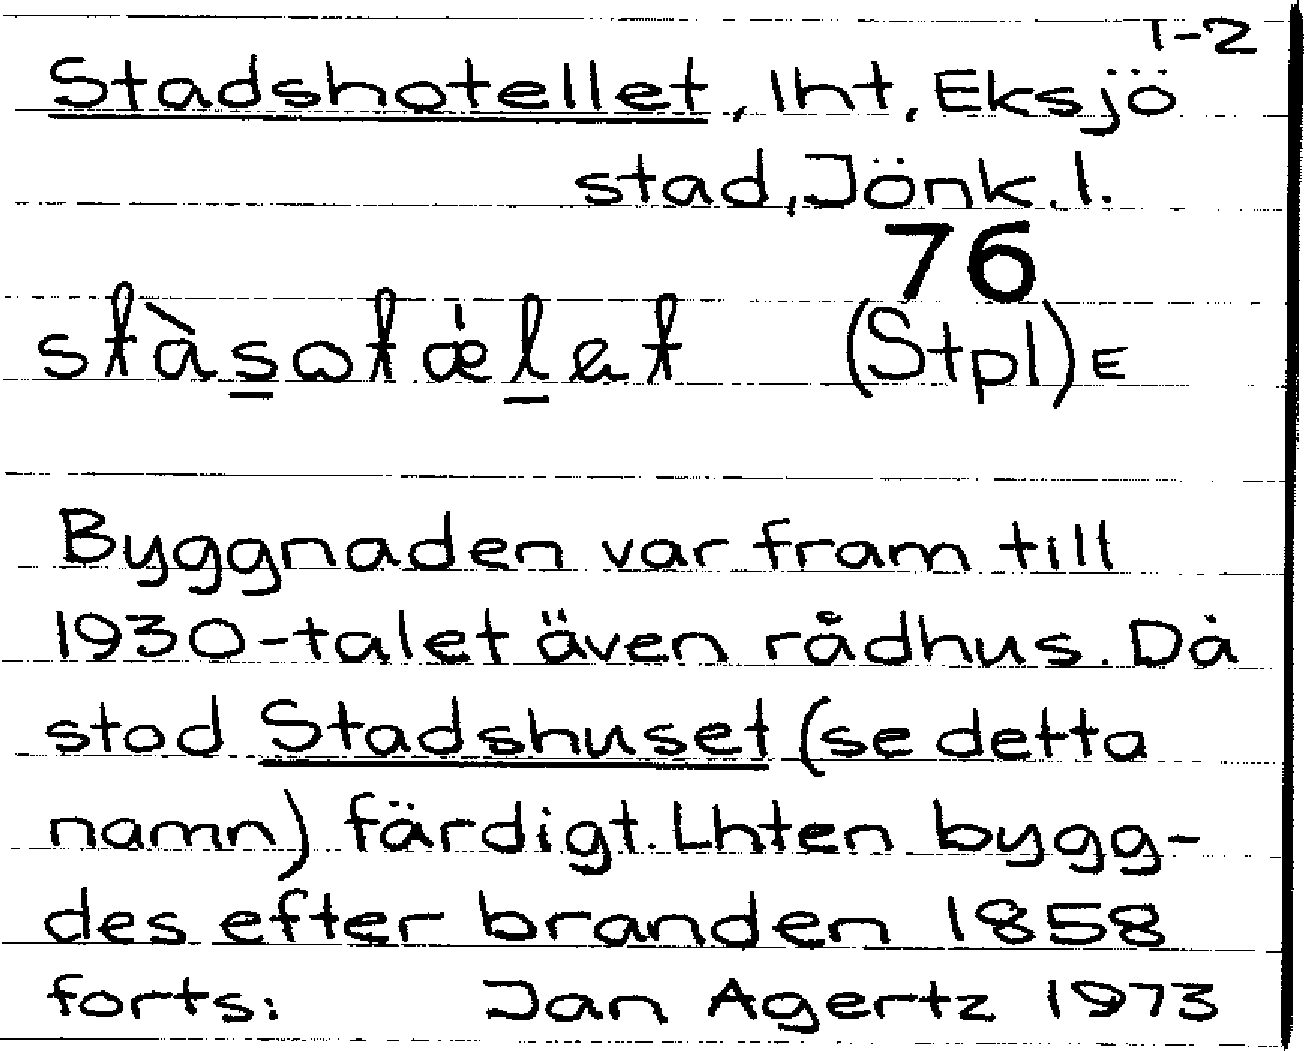 1-2
Stadshotellet, lht, Eksjö
stad, Jönk. l.
76
stàsωtæ̀let (Stpl) E
Byggnaden var fram till
1930-talet även rådhus. Då
stod Stadshuset (se detta
namn) färdigt. Lhten bygg-
des efter branden 1858
forts: Jan Agertz 1973